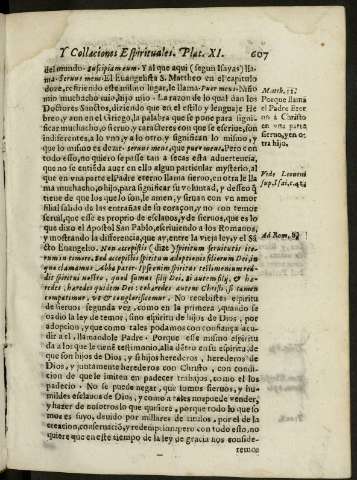 Y Collaciones Espirituales. Plat. XI. 607
del mundo. suscipiam eum. Y al que aqui (segun Isayas) lla-
ma. Seruus meus. El Euangelista S. Mattheo en el capitulo
doze, refiriendo este mismo lugar, le llama. Puer meus. Niño
mio muchacho mio, hijo mio. La razon de lo qual dan los
Doctores Sanctos, diziendo que en el estylo y lenguaje He
breo, y aun en el Griego, la palabra que se pone para signi-
ficar muchacho, o sieruo, y caracteres con que se escriue, son
indiferentes, a lo vno, y a lo otro, y significan lo mismo, y
que lo mismo es dezir seruus meus, que puer meus. Pero con
todo esso, no quiero se passe tan a secas esta aduertencia,
que no se entiēda auer en ello algun particular mysterio, al
que en vna parte el Padre eterno llama sieruo, en otra le lla
ma muchacho, hijo, para significar su voluntad, y desseo q̄
tiene de que los que lo son, le amen, y siruan con vn amor
filial salido de las entrañas de su coraçon, y no con temor
seruil, que esse es proprio de esclauos, y de sieruos, que es lo
que dixo el Apostol San Pablo, escriuiendo a los Romanos,
y mostrando la differencia, que ay, entre la vieja ley, y el Sā
cto Euangelio. Non accepistis (dize) spiritum seruitutis iterum
in timore, sed accepistis spiritum adoptionis filiorum Dei, in
qua clamamus. Abba pater. Ipse enim spiritus testimonium red-
dit spiritui nostro, quod sumus filij Dei, si autem filij, & hæ-
redes, hæredes quidem Dei: cohæredes autem Christi, si tamen
compatimur, vt & conglorificemur. No recebistes espiritu
de sieruos segunda vez, como en la primera, quando se
os dio la ley de temor, sino espiritu de hijos de Dios, por
adopcion, y que como tales podamos con confiança acu-
dir a el, llamandole Padre. Porque esse mismo espiritu
da a los que le tiene testimonio, alla dētro en su espiritu, de
que son hijos de Dios, y si hijos herederos, herederos de
Dios, y juntamente herederos con Christo, con condi-
cion de que le imiten en padecer trabajos, como el los
padecio. No se puede negar, que somos sieruos, y hu-
mildes esclauos de Dios, y como a tales nos puede vender,
y hazer de nosotros lo que quisiere, porque todo lo que so
mos es suyo, deuido por millares de titulos, por el de la
creacion, conseruació, y redempciō, pero con todo esto, no
quiere que en este tiempo de la ley de gracia nos conside-
remos
Matth. 12.
Porque llama
el Padre Eter
no a Christo
en vna parte
sieruo, y en o-
tra hijo.
Vide Leonem
sup. Isai. c. 42.
Ad Rom. 8.